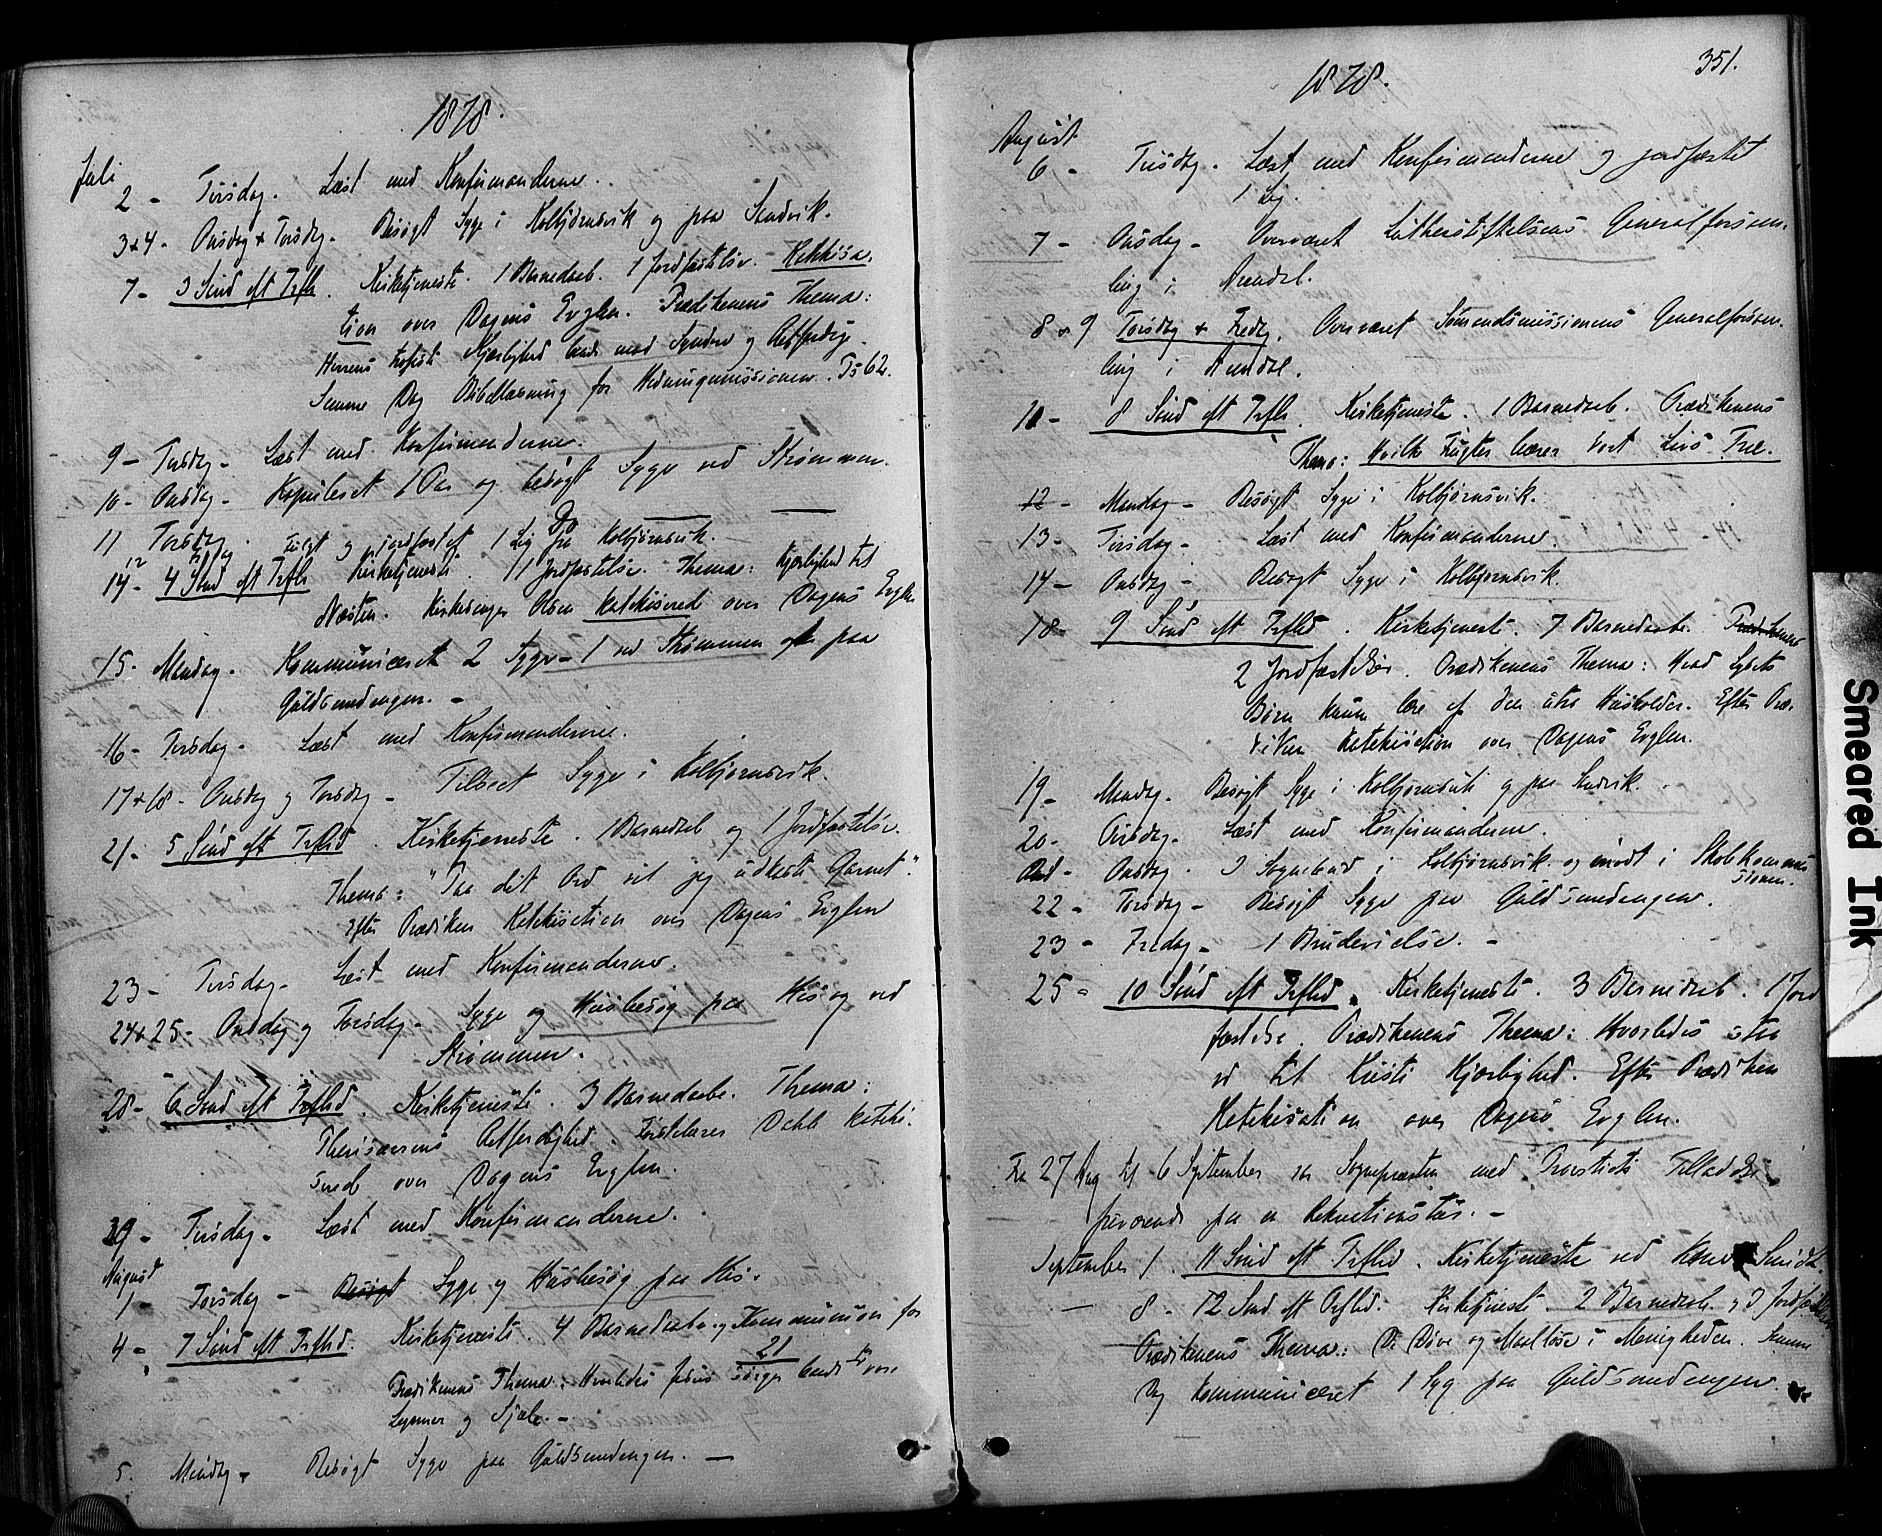 1878.
Juli
2 - Tirsdag. Læst med Konfirmanderne.
3 & 4 - Onsdag & Torsdg. Besøgt Syge i Kolbjørnsvik og paa Sandvik.
7 - 3 Sønd eft Trflr. Kirketjeneste. 1 Barnedaab. 1 Jordfæstelse. Katekisa-
tion over Dagens Evglm. Prædikenens Thema:
Herrens Kjærlighed baade mod Syndere og Retfærdige.
Samme Dag Bibellæsning for Hedningemissionen. Ps 62.
9 - Tirsdag - Læst med Konfirmanderne.
10 - Onsdag - Kopuleret 1 Par og besøgt Syge ved Strømmen.
11 Torsdag. Do
12 Fulgt og jordfæstet 1 Lig fra Kolbjørnsvik.
14 - 4 Sønd eft Trflr Kirketjeneste. 1 Jordfæstelse. Thema: Kjærlighed til
Næsten. Kirkesanger Olsen katekiserede over Dagens Evglm
15. Mandag. Kommuniceret 2 Syge - 1 ved Strømmen og paa
Guldsmedengen. -
16 - Tirsdag - Læst med Konfirmanderne.
17 & 18 - Onsdag og Torsdag - Tilseet Syge i Kolbjørnsvik.
21 - 5 Sønd eft Trflrd. Kirketjeneste. 1 Barnedaab og 1 Jordfæstelse.
Thema: "Paa dit Ord vil jeg udkaste Garnet".
Efter Prædiken Katekisation over Dagens Evglm
23 - Tirsdag - Læst med Konfirmanderne.
24 & 25 - Onsdag og Torsdag - Syge og Husbesøg paa His og ved
Strømmen.
28 - 6 Sønd eft Trflrd. Kirketjeneste. 3 Barnedaabe. Thema:
Pharisæernes Retfærdighed. Førstelærer Dahl kateki-
serede over Dagens Evglm.
30 - Tirsdag - Læst med Konfirmanderne.
August
1 - Torsdag - Besøgt Syge og Husbesøg paa His.
4 - 7 Sønd eft Trflrd. Kirketjeneste. 4 Barnedaabe og Kommunion for
21
Prædikenens Thema: Hvorledes Jesus sørger baade for vore
Legemer og Sjæle. -
5. Mandag - Besøgt Syge paa Guldsmedengen. -
351.
1878.
August
6 - Tirsdag. Læst med Konfirmanderne og jordfæstet
1 Lig.
7 - Onsdag - Overværet Lutherstiftelsens Generalforsam-
ling i Arendal.
8 & 9 Torsdag & Fredg. Overværet Sømandsmissionens Generalforsam-
ling i Arendal.
11 - 8 Sønd eft Trflr. Kirketjeneste. 1 Barnedaab. Prædikenens
Thema: Hvilke Frugter bærer vort Livs Træ.
12 - Mandag - Besøgt Syge i Kolbjørnsvik.
13 - Tirsdag - Læst med Konfirmanderne
14 - Onsdag - Besøgt Syge i Kolbjørnsvik.
18 - 9 Sønd eft Trflrd. Kirketjeneste. 7 Barnedaabe. Prædikenens
2 Jordfæstelser. Prædikenens Thema: Hvad Lysets
Børn kunne lære af den utro Husholder. Efter Præ-
diken Katekisation over Dagens Evglm.
19 - Mandag. Besøgt Syge i Kolbjørnsvik og paa Sandvik.
20 - Tirsdag - Læst med Konfirmanderne.
Onsdag. Sognebud i Kolbjørnsvik og mødt i Skolekommis
sionen.
22 - Torsdag - Besøgt Syge paa Guldsmedengen.
23 - Fredag - 1 Brudevielse. -
25 - 10 Sønd eft Trflrd. Kirketjeneste. 3 Barnedaab. 1 Jord
fæstelse. Prædikenens Thema: Hvorledes staa
vi til Kristi Kjærlighed. Efter Prædiken
Katekisation over Dagens Evglm.
Fra 27 Aug til 6 September er Sognepræsten med Provstiets Tilladelse
fraværende paa en Rekreationstur. -
September 1. 11 Sønd eft Trflrd. Kirketjeneste ved Smidt
8 - 12 Sønd eft Trflrd. Kirketjeneste. 2 Barnedaab og Jordfæstelse
Prædikenens Thema: De Døve og Maalløse i Menigheden. Samme
Dag kommuniceret 1 Syg paa Guldsmedengen.
Smeared Ink